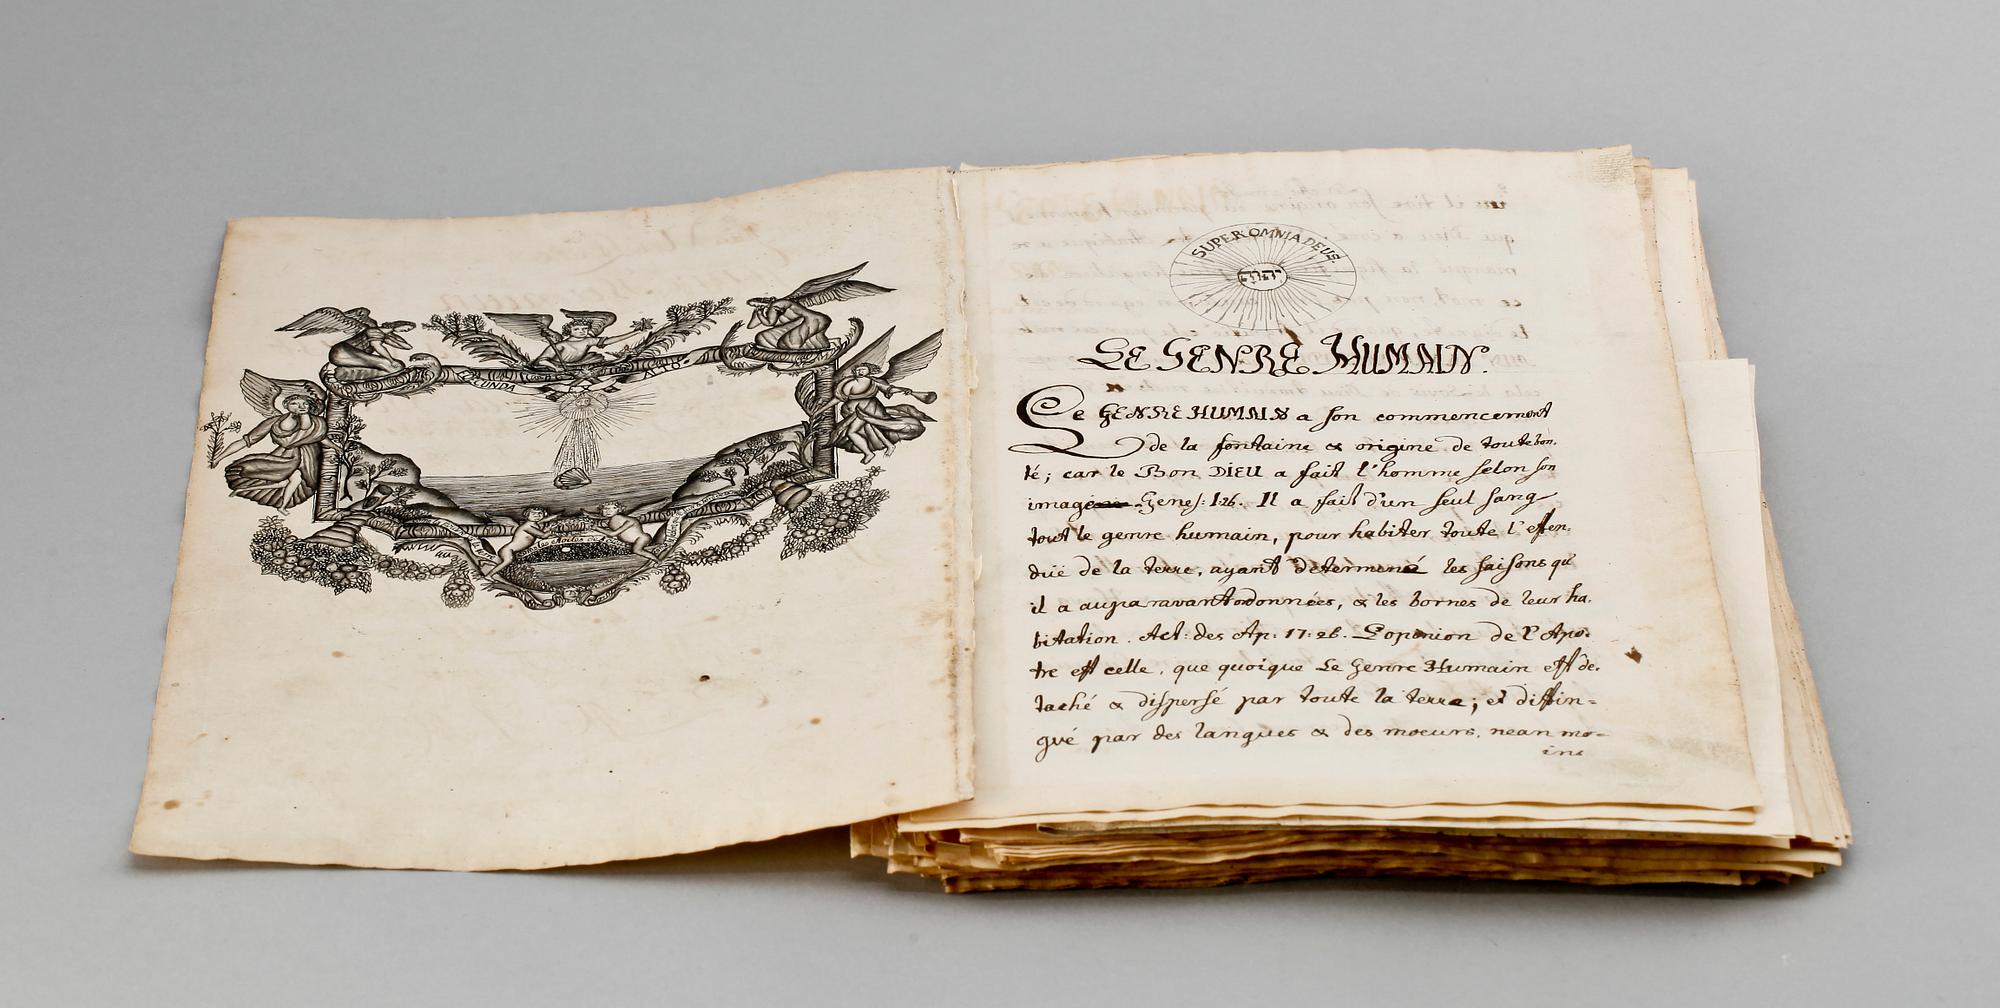 SECUNDA
ALTO
SUPER OMNIA DEUS.
יהוה
LE GENRE HUMAIN.
Le GENRE HUMAIN a son commencement
de la fontaine & origine de toute bon-
té; car le Bon DIEU a fait l'homme selon son
image Genes: 1.26. Il a fait d'un seul sang
tout le genre humain, pour habiter toute l'esten-
duë de la terre, ayant determiné les saisons qu'
il a auparavant ordonnées, & les bornes de leur ha-
bitation. Act: des Ap: 17:26. L'opinion de l'Apo-
tre est celle, que quoique Le Genre Humain est de-
taché & dispersé par toute la terre; et distin=
gué par des langues & des moeurs, nean mo=
ins